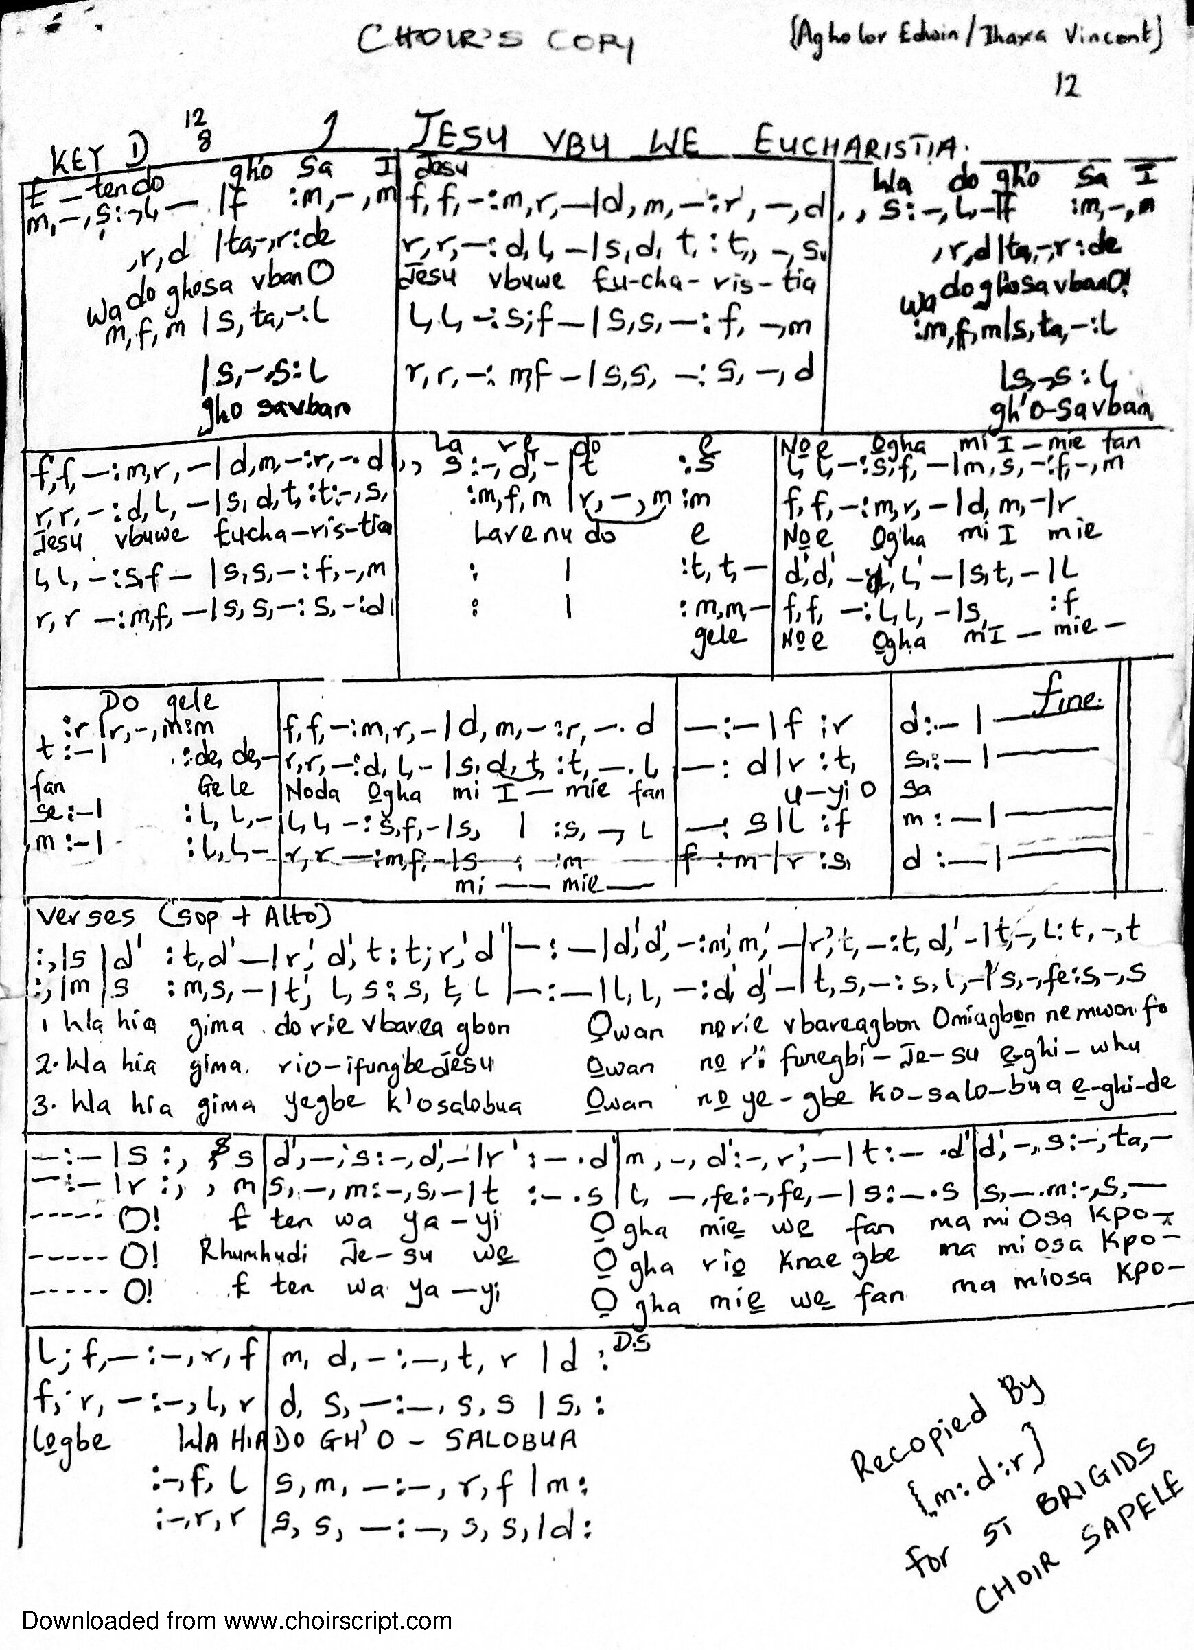 CHOIR'S COPY
(Agholor Edwin/Ihaxa Vincent)
12
KEY D 12 8 1 JESU VBU WE EUCHARISTIA.
E - ten do gho Sa I Jesu Wa do gho Sa I
m,-,s:-,L- |f :m,-,m f,f,-:m,r,-|d,m,-:r,-,d ,, s:-,L,-|f :m,-,m
,r,d |ta,-,r:de r,r,-:d,L,-|s,d,t,:t,,-,s, ,r,d|ta,-,r:de
Wa do gho sa vban O Jesu vbuwe Eu-cha-ris-tia Wa do gho sa vban O!
m,f,m |s,ta,-:L L,L,-:s;f-|s,s,-:f,-,m :m,f,m|s,ta,-:L
|s,-,s:L r,r,-:m,f-|s,s,-:s,-,d |s,-,s:L,
gho savban gh'O-Savban
f,f,-:m,r,-|d,m,-:r,-.d ,, La re do e Noe Ogha mi I-mie fan
s:-,d,-|t :s L,L,-:s,f,-|m,s,-:f,-,m
r,r,-:d,L,-|s,d,t,:t:-,s, :m,f,m |r,-,m:m f,f,-:m,r,-|d,m,-|r
Jesu vbuwe Eucha-ris-tia La re nu do e Noe Ogha mi I mie
L,L,-:s,f- |s,s,-:f,-,m : | :t,t,- d',d',-:L',L'-|s,t,-|L
r,r -:m,f,-|s,s,-:s,-:d| : | :m,m,- f,f,-:L,L,-|s, :f
gele Noe Ogha mI-mie-
Do gele fine.
:r |r,-,m:m f,f,-:m,r,-|d,m,-:r,-.d -:-|f :r d:-|-
t:-| :de,de,- r,r,-:d,L,-|s,d,t,:t,-.L -: d|r :t, s,:-|-
fan Gele Noda Ogha mi I-mie fan u-yi O sa
se:-| :L,L,- L,L,-:s,f,-|s, | :s,-,L -: s|L :f m:-|-
m:-| :L,L,- r,r-:m,f,-|s : :m f:m|r :s, d:-|-
mi - mie -
Verses (Sop + Alto)
:,|s |d' :t,d'-|r',d',t:t;r,'d' |-:-|d',d',-:m',m,'-|r',t,-:t,d,'-|t,-,L:t,-,t
:,|m |s :m,s,-|t; L,s:s,t,L |-:-|L,L,-:d',d'-|t,s,-:s,L,-|s,-,fe:s,-,s
1 Wa hia gima do rie vbarea gbon Owan no rie vbareagbon Omiagbon ne mwan fo
2. Wa hia gima. rio-ifungbe Jesu Owan no ri funegbi-Je-su e-ghi-whu
3. Wa hia gima yegbe k'osalobua Owan no ye-gbe ko-salo-bua e-ghi-de
-:-|s:, s|d',-,s:-,d,-|r':-.d'|m,-,d:-,r,-|t:-.d'|d',-,s:-,ta,-
-:-|r:, ,m|s,-,m:-,s,-|t :-.s|t,-,fe:-,fe,-|s:-.s |s,-.m:-,s,-
----- O! E ten wa ya-yi Ogha mie we fan ma mi Osa kpo-
----- O! Rhumhudi Je-su we Ogha rio Knae gbe ma mi osa kpo-
----- O! E ten wa ya-yi Ogha mie we fan ma miosa kpo-
L;f,-:-,r,f|m,d,-:-,t,r |d : D.S
f,r,-:-,L,r|d,s,-:-,s,s |s,:
Logbe WA HIA DO GH'O-SALOBUA
:-,f,L |s,m,-:-,r,f|m:
:-,r,r |s,s,-:-,s,s,|d:
Recopied By
[m:d:r]
for ST BRIGIDS
CHOIR SAPELE
Downloaded from www.choirscript.com